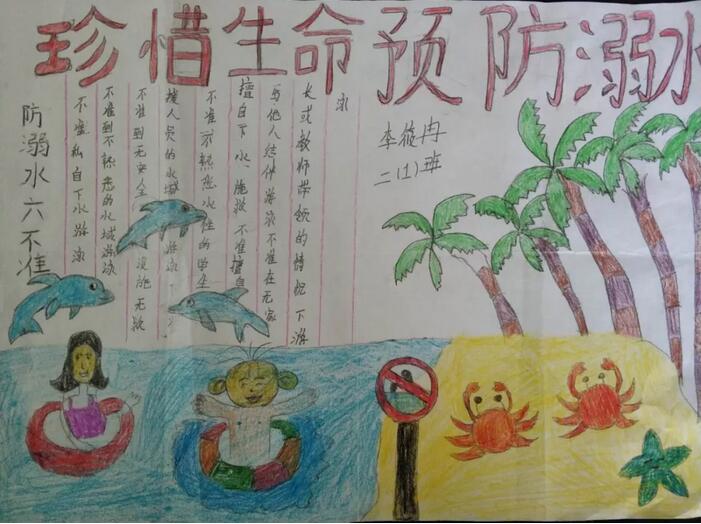 珍惜生命预防溺水
防溺水六不准
不准私自下水游泳
不准到不熟悉的水域游泳
不准到无安全设施无救
援人员的水域游泳
不准不熟悉水性的学生
擅自下水施救不准擅自
与他人结伴游泳不准在无家
长或教师带领的情况下游
泳
李筱冉
二(1)班